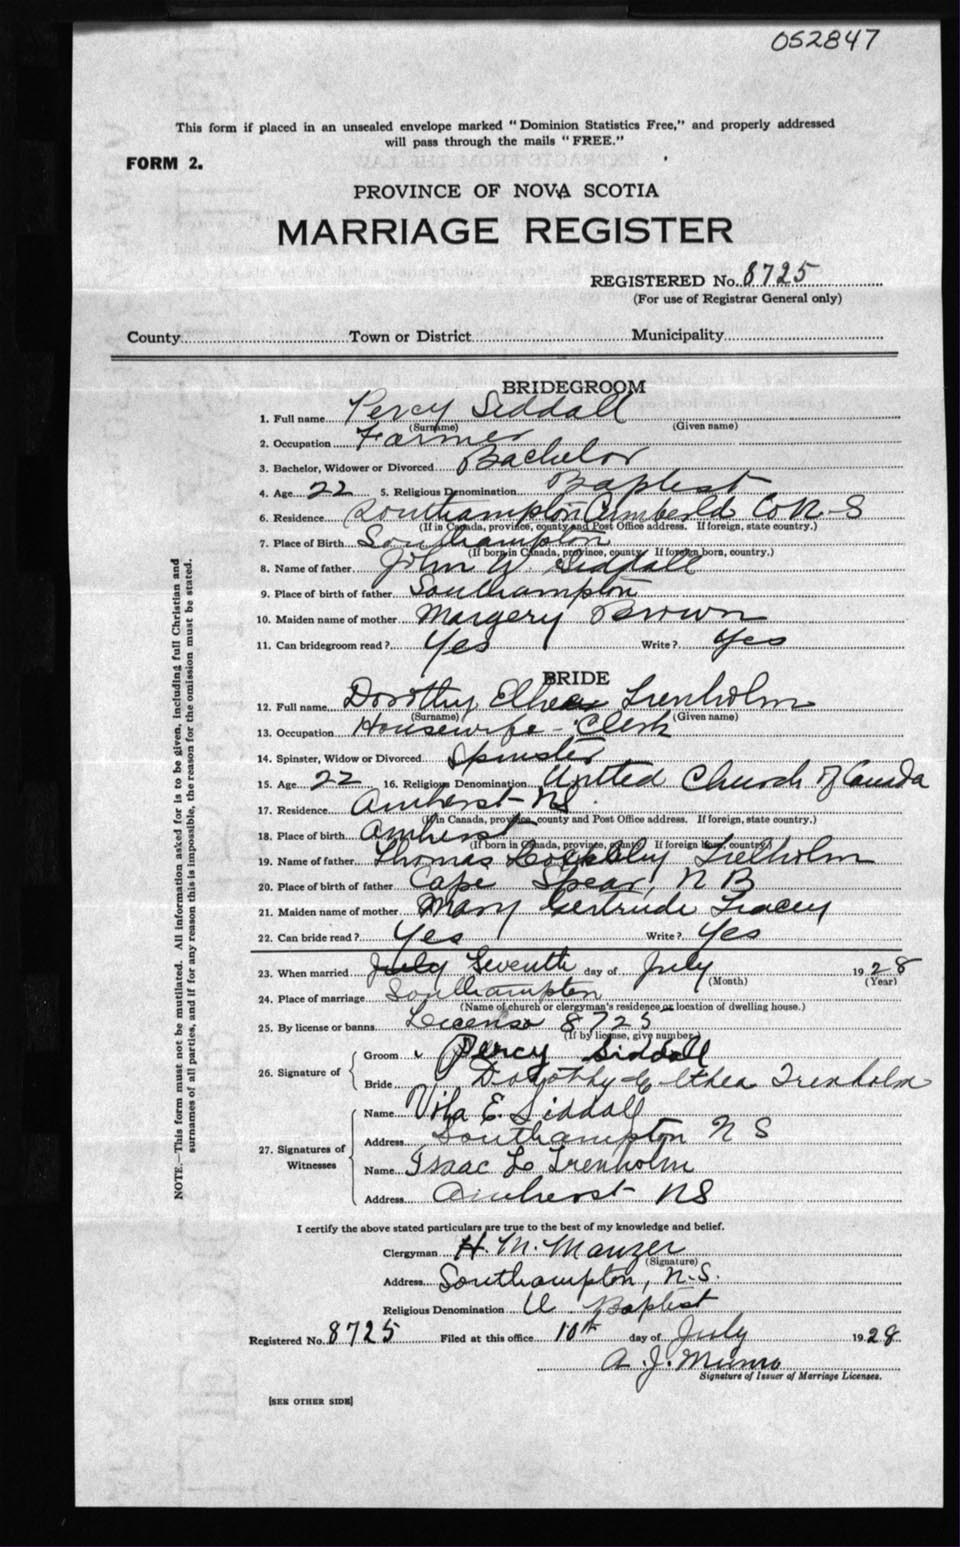 052847
This form if placed in an unsealed envelope marked "Dominion Statistics Free," and properly addressed
will pass through the mails "FREE."
FORM 2.
PROVINCE OF NOVA SCOTIA
MARRIAGE REGISTER
REGISTERED No. 8725
(For use of Registrar General only)
County Town or District Municipality
BRIDEGROOM
1. Full name Percy Siddall
(Surname) (Given name)
2. Occupation Farmer
3. Bachelor, Widower or Divorced Bachelor
4. Age 22 5. Religious Denomination Baptist
6. Residence Southampton Cumberld Co N-S
(If in Canada, province, county and Post Office address. If foreign, state country.)
7. Place of Birth Southampton
(If born in Canada, province, county If foreign born, country.)
8. Name of father John W. Siddall
9. Place of birth of father Southampton
10. Maiden name of mother Margery Brown
11. Can bridegroom read? Yes Write? Yes
BRIDE
12. Full name Dorothy Trenholm
(Surname) (Given name)
13. Occupation Housewife - Clerk
14. Spinster, Widow or Divorced Spinster
15. Age 22 16. Religious Denomination United Church of Canada
17. Residence Amherst NS.
(In Canada, province, county and Post Office address. If foreign, state country.)
18. Place of birth Amherst
(If born in Canada, province, county; If foreign born, country.)
19. Name of father Thomas
20. Place of birth of father Cape Spear, NB
21. Maiden name of mother Mary Gertrude Tracey
22. Can bride read? Yes Write? Yes
23. When married July Seventh day of July 1928
(Month) (Year)
24. Place of marriage Southampton
(Name of church or clergyman's residence or location of dwelling house.)
25. By license or banns License 8725
(If by license, give number.)
26. Signature of
Groom Percy Siddall
Bride Dorothy Elthea Trenholm
27. Signatures of Witnesses
Name E. Siddall
Address Southampton N S
Name Isaac L Trenholm
Address Amherst NS
I certify the above stated particulars are true to the best of my knowledge and belief.
Clergyman H. M. Manzer
(Signature)
Address Southampton, N.S.
Religious Denomination U. Baptist
Registered No. 8725 Filed at this office 10th day of July 1928
A. J. Munro
Signature of Issuer of Marriage Licenses.
[SEE OTHER SIDE]
NOTE.—This form must not be mutilated. All information asked for is to be given, including full Christian and
surnames of all parties, and if for any reason this is impossible, the reason for the omission must be stated.